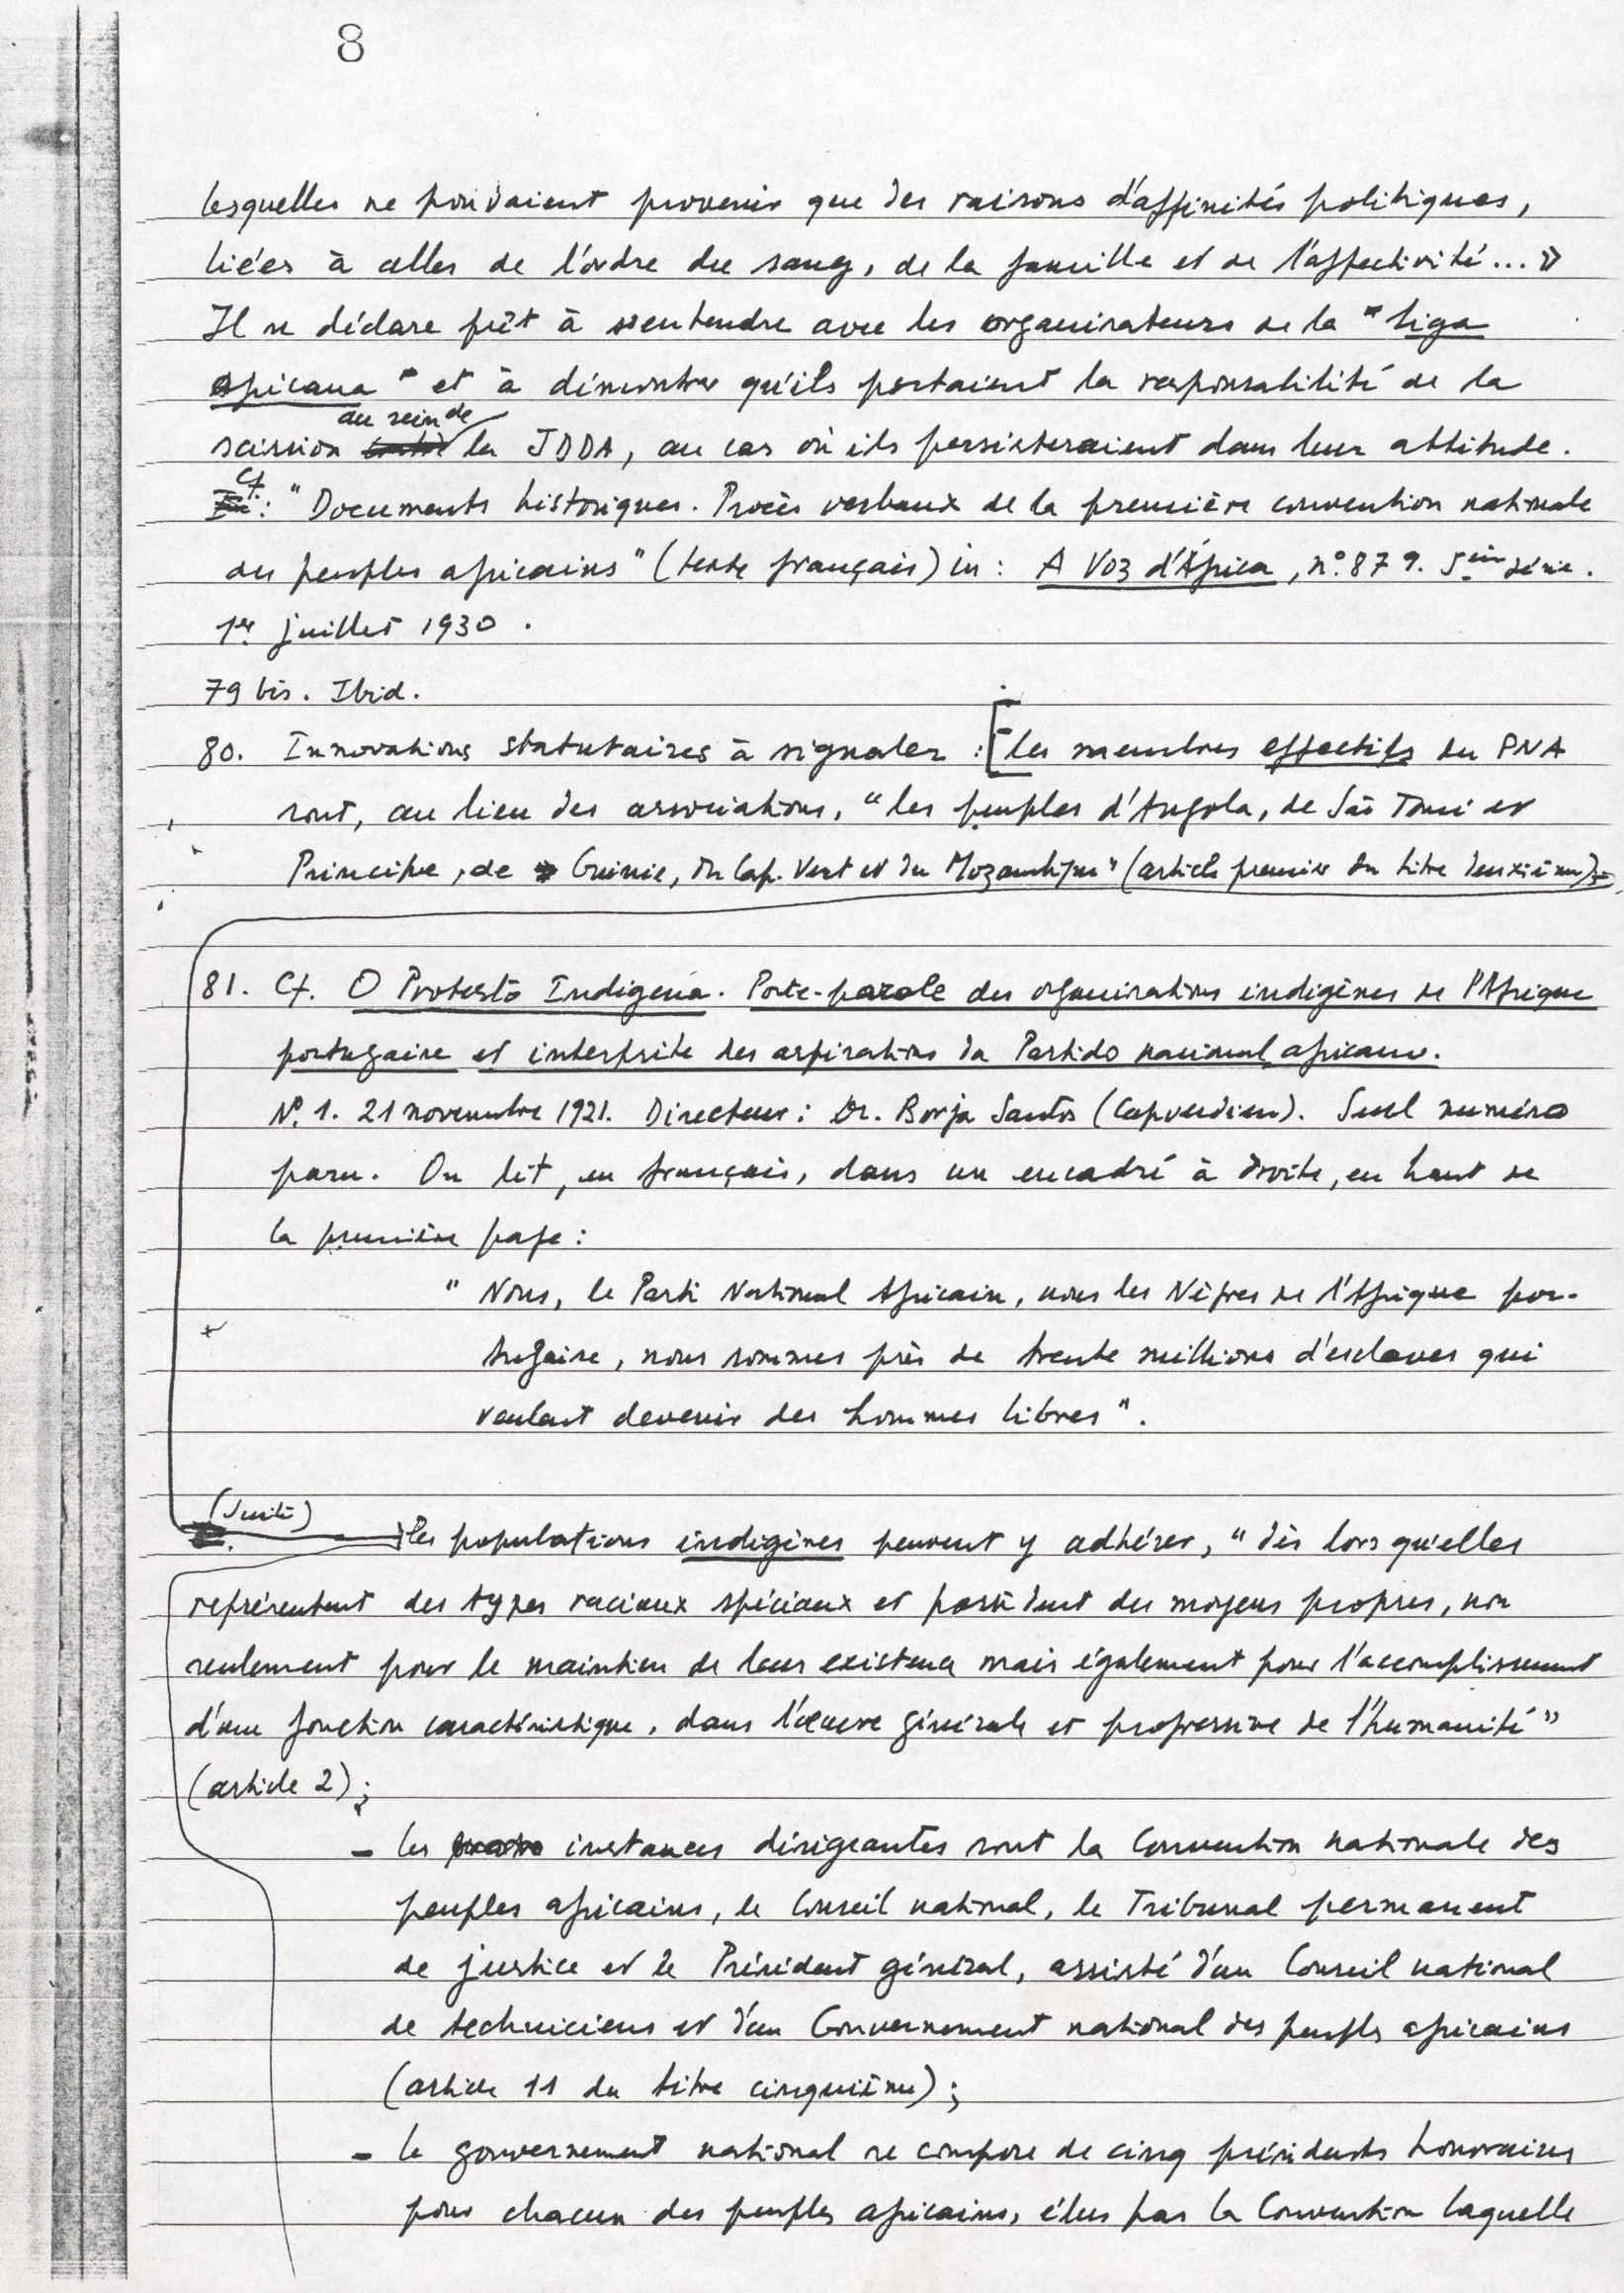 8
lesquelles ne pouvaient provenir que des raisons d'affinités politiques,
liées à celles de l'ordre du sang, de la famille et de l'affectivité... »
Il se déclare prêt à s'entendre avec les organisateurs de la "Liga
africana" et à démontrer qu'ils portaient la responsabilité de la
au sein de
scission la JDDA, au cas où ils persisteraient dans leur attitude.
Cf.
: "Documents historiques. Procès verbaux de la première convention nationale
des peuples africains" (texte français) in : A Voz d'África, nº 879. 5ème série.
1er juillet 1930.
79 bis. Ibid.
80. Innovations statutaires à signaler : [les membres effectifs du PNA
sont, au lieu des associations, "les peuples d'Angola, de São Tomé et
Principe, de Guinée, du Cap. Vert et du Mozambique" (article premier du titre deuxième)
81. Cf. O Protesto Indigena. Porte-parole des organisations indigènes de l'Afrique
portugaise et interprète des aspirations du Partido nacional africano.
Nº 1. 21 novembre 1921. Directeur : Dr. Borja Santos (Capverdien). Seul numéro
paru. On lit, en français, dans un encadré à droite, en haut de
la première page :
"Nous, le Parti National Africain, nous les Nègres de l'Afrique por-
tugaise, nous sommes près de trente millions d'esclaves qui
veulent devenir des hommes libres".
(Suite)
les populations indigènes peuvent y adhérer, "dès lors qu'elles
représentent des types raciaux spéciaux et possèdent des moyens propres, non
seulement pour le maintien de leur existence mais également pour l'accomplissement
d'une fonction caractéristique, dans l'œuvre générale et progressive de l'humanité"
(article 2) ;
- les instances dirigeantes sont la Convention nationale des
peuples africains, le Conseil national, le Tribunal permanent
de justice et le Président général, assisté d'un Conseil national
de techniciens et d'un Gouvernement national des peuples africains
(article 11 du titre cinquième) ;
- le gouvernement national se compose de cinq présidents honoraires
pour chacun des peuples africains, élus par la Convention laquelle